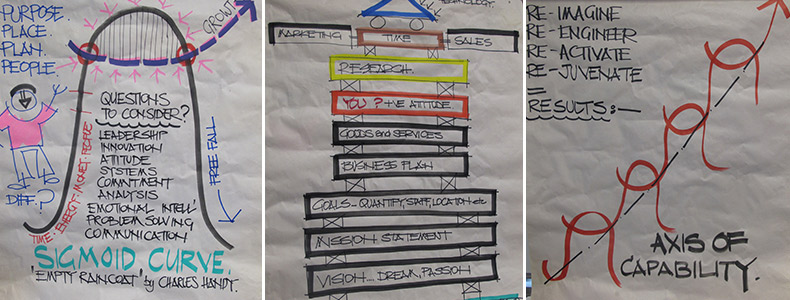 PURPOSE.
PLACE.
PLAN.
PEOPLE.
GROWTH
QUESTIONS
TO CONSIDER?
LEADERSHIP
INNOVATION
ATTITUDE
SYSTEMS
COMMITMENT
ANALYSIS
EMOTIONAL INTELL'
PROBLEM SOLVING
COMMUNICATION
DIFF.?
TIME · ENERGY · MONEY · PEOPLE
FREE FALL
SIGMOID CURVE.
"EMPTY RAINCOAT" by CHARLES HANDY.
TECHNOLOGY.
MARKETING
TIME
SALES
RESEARCH.
YOU? +VE ATTITUDE
GOODS and SERVICES
BUSINESS PLAN
GOALS... QUANTIFY, STAFF, LOCATION etc
MISSION STATEMENT
VISION.... DREAM, PASSION
RE-IMAGINE
RE-ENGINEER
RE-ACTIVATE
RE-JUVENATE
=
RESULTS:-
AXIS OF
CAPABILITY.